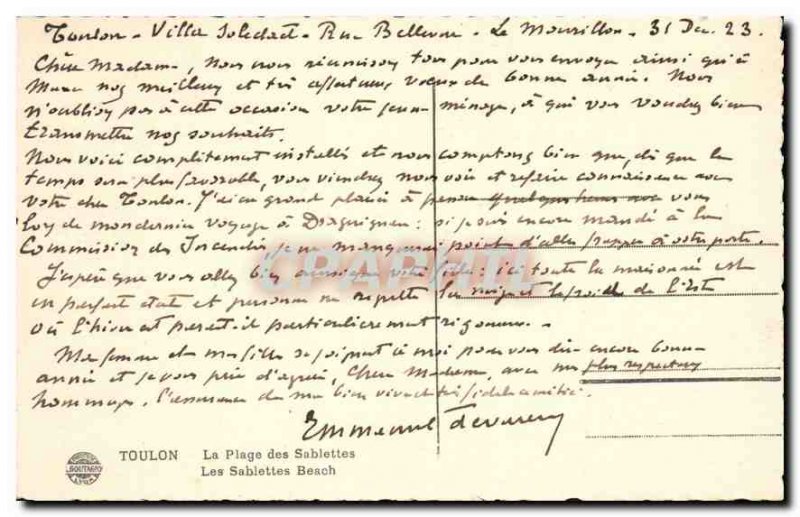 Toulon - Villa Soledad - Rue Bellevue - Le Mourillon - 31 Dec. 23.
Chère Madame, Nous nous réunissons tous pour vous envoyer ainsi qu'à
nos meilleurs et très affectueux voeux de bonne année. Nous
n'oublions pas à cette occasion votre jeune ménage, à qui vous voudrez bien
transmettre nos souhaits.
Nous voici complètement installés et nous comptons bien que, dès que le
temps sera plus favorable, vous viendrez nous voir et refaire connaissance avec
votre cher Toulon. J'ai eu grand plaisir à passer quelques heures avec vous
lors de mon dernier voyage à Draguignan : si je suis encore mandé à la
Commission des Incendies je ne manquerai point d'aller frapper à votre porte.
J'espère que vous allez bien ainsi que votre fille : ici toute la maisonnée est
en parfait état et personne ne regrette la neige et le froid de l'Est
où l'hiver est paraît-il particulièrement rigoureux.
Ma femme et ma fille se joignent à moi pour vous dire encore bonne
année et je vous prie d'agréer, Chère Madame, avec mes plus respectueux
hommages, l'assurance de ma bien vive et très fidèle amitié.
Emmanuel
CPAPHIL
TOULON La Plage des Sablettes
Les Sablettes Beach
LYON